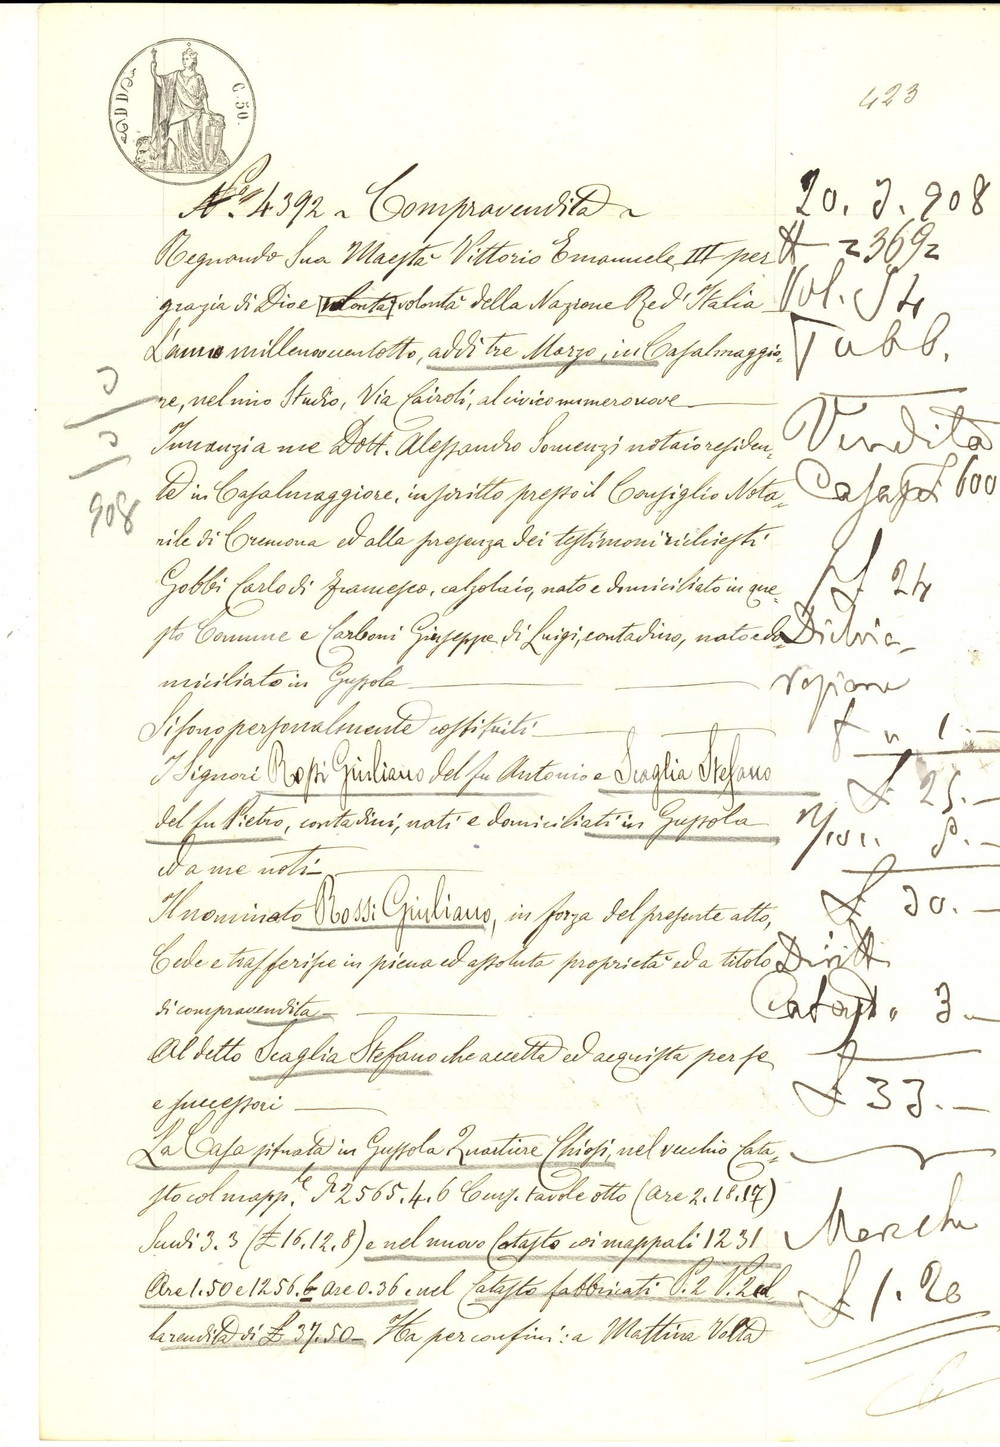 C. 50.
423
N.° 4392 ~ Compravendita ~
Regnando Sua Maestà Vittorio Emanuele III per
grazia di Dio e volontà volontà della Nazione Re d'Italia
L'anno millenovecentotto, addì tre Marzo, in Casalmaggio-
re, nel mio Studio, Via Cairoli, al civico numero nove
Innanzi a me Dott. Alessandro Somenzi notaio residen-
te in Casalmaggiore, inscritto presso il Consiglio Nota-
rile di Cremona ed alla presenza dei testimoni richiesti
Gobbi Carlo di Francesco, calzolaio, nato e domiciliato in que-
sto Comune e Carboni Giuseppe di Luigi, contadino, nato e do-
miciliato in Gussola
Si sono personalmente costituiti
I Signori Rossi Giuliano del fu Antonio e Scaglia Stefano
del fu Pietro, contadini, nati e domiciliati in Gussola
ed a me noti
Il nominato Rossi Giuliano, in forza del presente atto,
Cede e trasferisce in piena ed assoluta proprietà ed a titolo
di compravendita
Al detto Scaglia Stefano che accetta ed acquista per se
e successori
La Casa situata in Gussola Quartiere Chiosi, nel vecchio Cata-
sto col mapp.le N° 2565.4.6 Cens. tavole otto (are 2.18.17)
Scudi 3.3 (£ 16.12.8) e nel nuovo Catasto coi mappali 1231
are 1.50 e 1256.6 are 0.36 e nel Catasto fabbricati P.2 V.2 col
la rendita di £ 37.50 - Ha per confini: a Mattina Volta
908
20. 3. 908
N 2369
Vol. 54
Fabb.
Vendita
Casa £ 600
£ 24
Dichia-
razione
£ " 1.-
£ 25.-
5.-
£ 30.-
Diritti
Catast. " 3.-
£ 33.-
Marche
£ 1.20